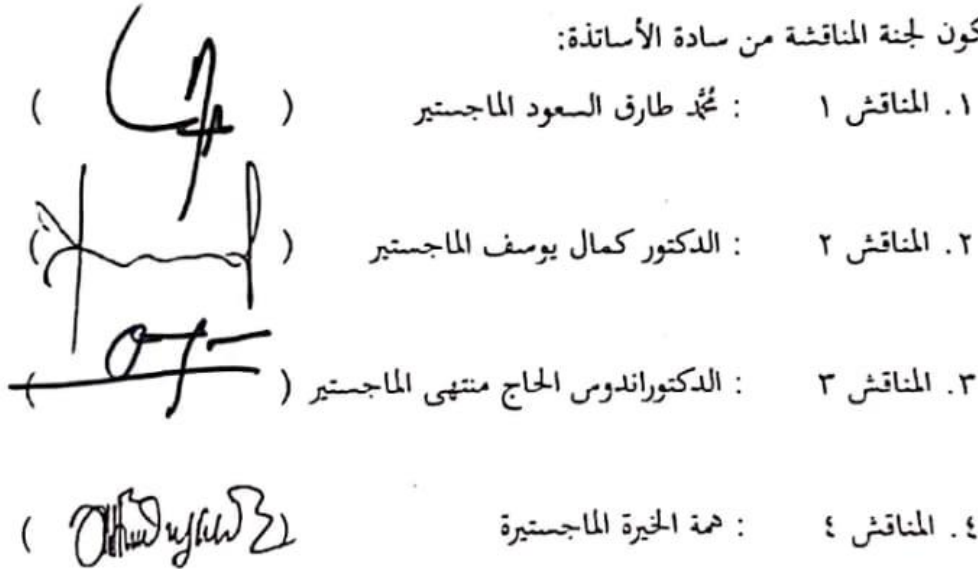 كون لجنة المناقشة من سادة الأساتذة:
١. المناقش ١ : محمد طارق السعود الماجستير ( )
٢. المناقش ٢ : الدكتور كمال يوسف الماجستير ( )
٣. المناقش ٣ : الدكتوراندوس الحاج منتهى الماجستير ( )
٤. المناقش ٤ : همة الخيرة الماجستيرة ( )